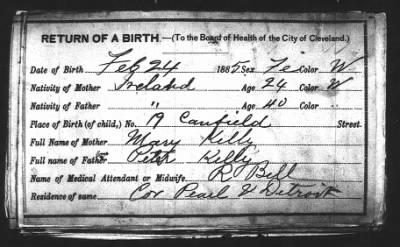 RETURN OF A BIRTH.—(To the Board of Health of the City of Cleveland.)
Date of Birth Feb 24 1885 Sex Fe Color W
Nativity of Mother Ireland Age 24 Color W
Nativity of Father " Age 40 Color "
Place of Birth (of child,) No. 19 Canfield Street.
Full Name of Mother Mary Kelly
Full name of Father Peter Kelly
Name of Medical Attendant or Midwife. R Bell
Residence of same Cor Pearl & Detroit